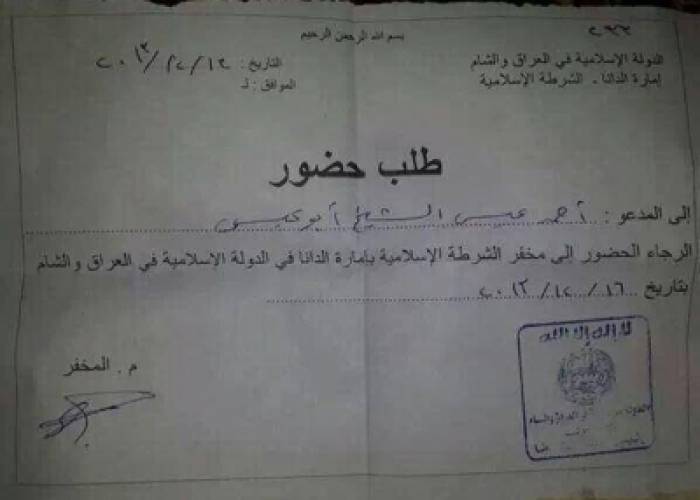 بسم الله الرحمن الرحيم
الدولة الإسلامية في العراق والشام
إمارة الدانا - الشرطة الإسلامية
التاريخ : ١٢/١٢/٢٠١٣
الموافق : لـ
طلب حضور
الى المدعو : أحمد عيسى الشيخ أبو عيسى
الرجاء الحضور إلى مخفر الشرطة الإسلامية بإمارة الدانا في الدولة الإسلامية في العراق والشام
بتاريخ ١٦/١٢/٢٠١٣
م . المخفر
لا إله إلا الله